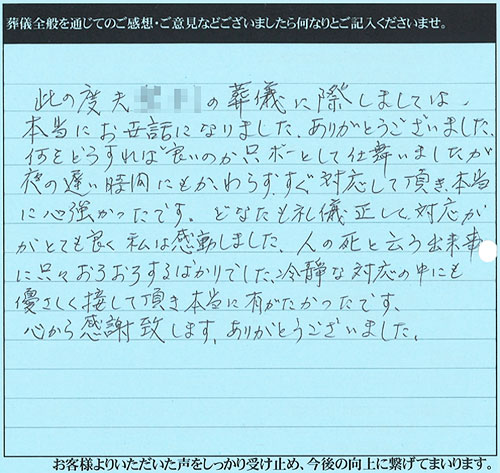 葬儀全般を通じてのご感想・ご意見などございましたら何なりとご記入くださいませ。
此の度夫の葬儀に際しましては、
本当にお世話になりました、ありがとうございました、
何をどうすれば良いのか只ボーとして仕舞いましたが
夜の遅い時間にもかゝわらず、すぐ対応して頂き、本当
に心強かったです。どなたも礼儀正しく、対応が
がとても良く私は感動しました、人の死と云う出来事
に只々おろおろするばかりでした、冷静な対応の中にも
優さしく接して頂き本当に有がたかったです、
心から感謝致します、ありがとうございました、
お客様よりいただいた声をしっかり受け止め、今後の向上に繋げてまいります。